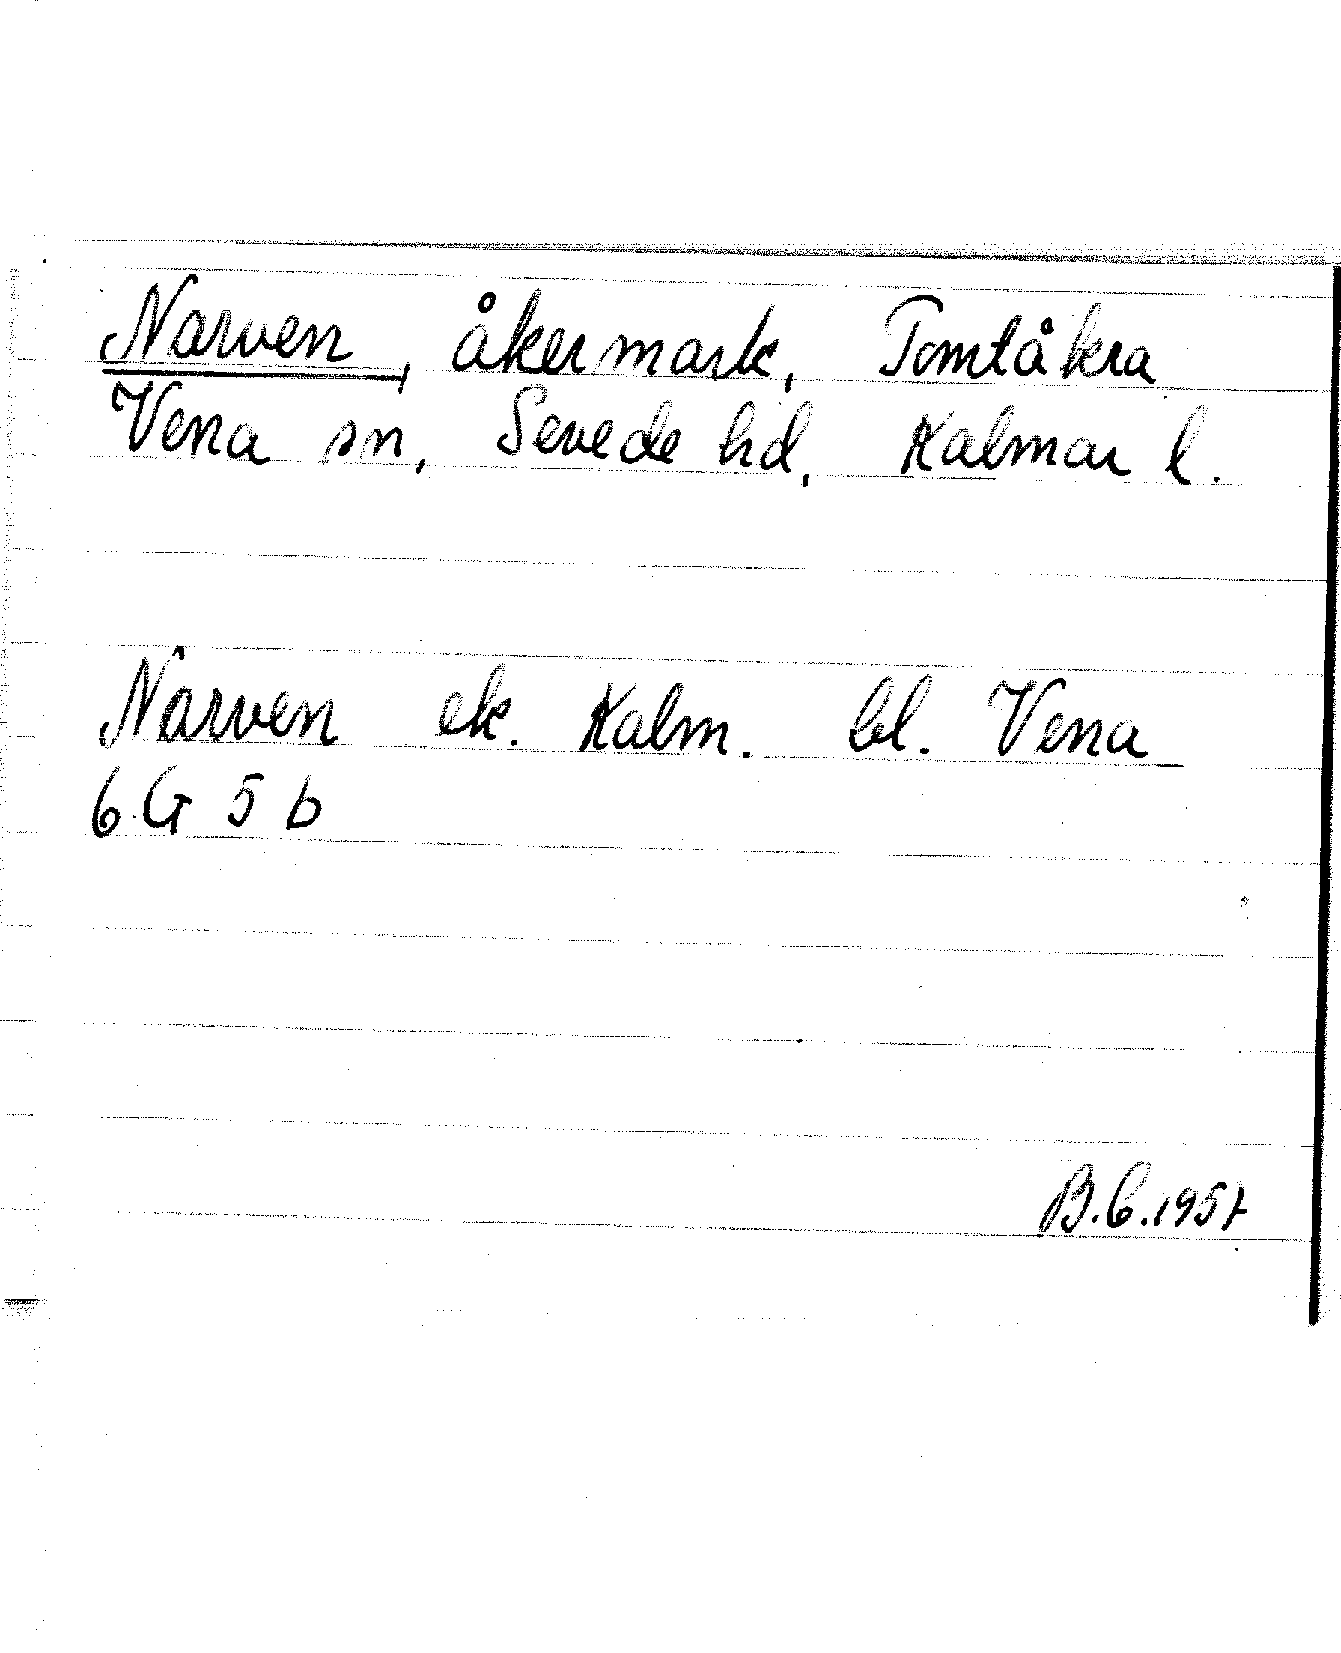 Narven, åkermark, Tomtåkra
Vena sn, Sevede hd, Kalmar l.
Narven ek. Kalm. bl. Vena
6 G 5 b
B.C.1957